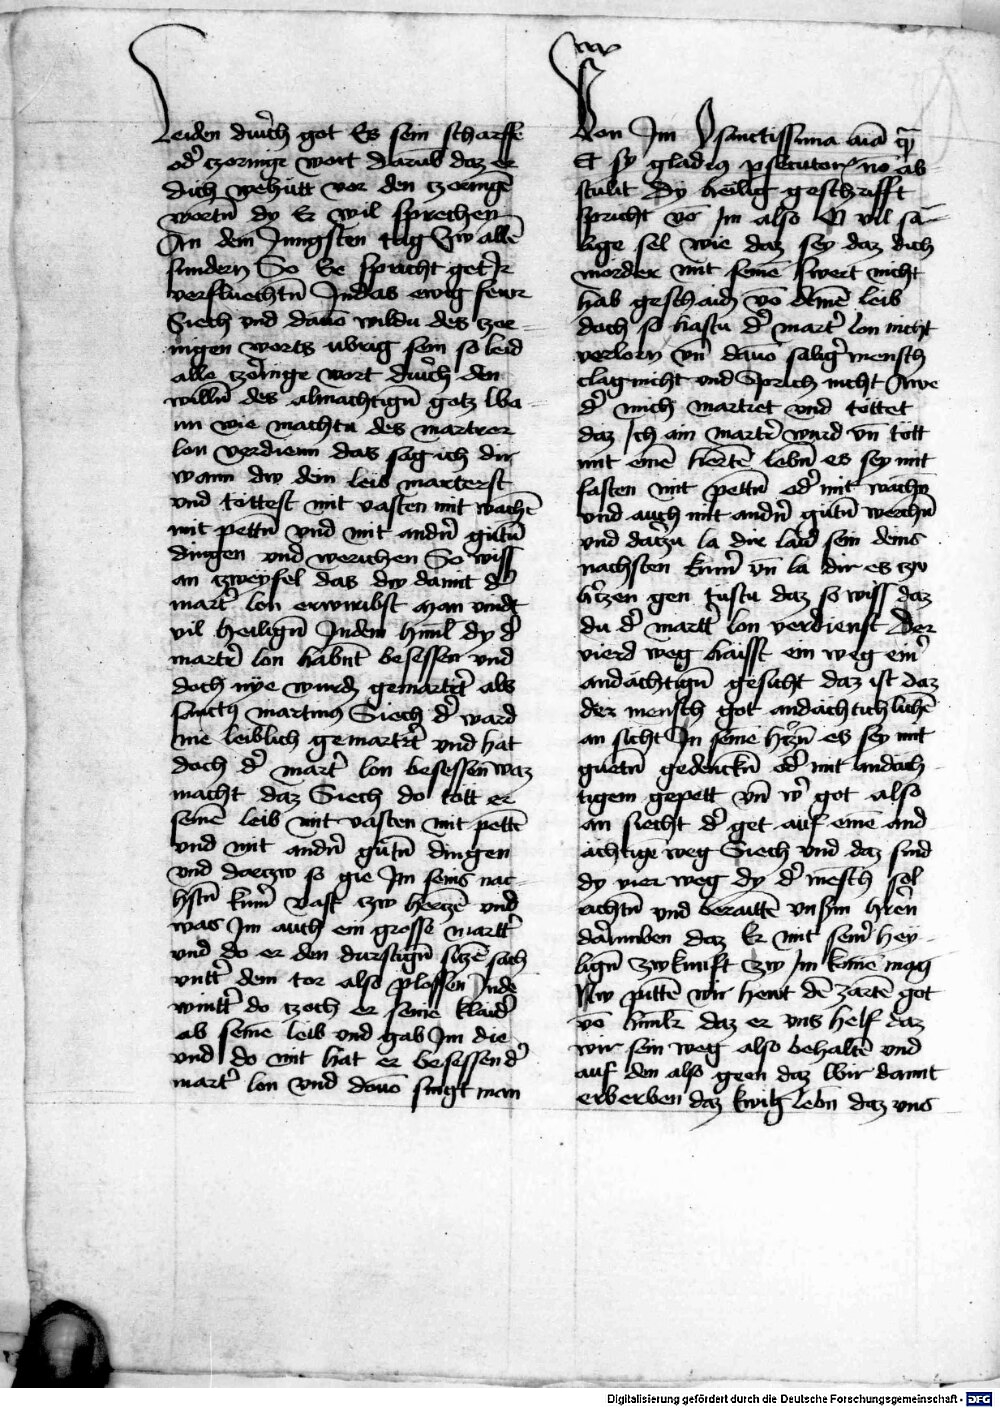 Leiden durch got Es sein scharffe
od᷑ czornige wort darub̄ daz er
dich wehutt vor den czornigē
wortn̄ dy Er wil sprechen
An dem Jungsten tag Zw allē
sundern So Er spricht get Jr
verfluechtn̄ Jn das ewig fewr
Siech vnd dauō wildu des czor-
nigen worts vbrig sein so leid
alle czornige wort durch den
willn̄ des almachtign̄ gotz
nu wie machtu des martrer
lon verdienn das sag ich dir
wann dw dein leib marterst
vnd tottest mit vasten mit wachē
mit pettn̄ vnd mit andn̄ gutn̄
dingen vnd werichen So wiss
an czweyfel das dw damit d᷑
mart᷑ lon erwiribst man vindt
vil heilign̄ Jn dem himl̄ dy d᷑
martr̄ lon habnt besessen vnd
doch nye wurdn̄ gemartr̄t als
sanctus martinus Siech d᷑ ward
nie leiblich gemartr̄t vnd hat
doch d᷑ mart᷑ lon besessen waz
macht daz Siech do tott er
seinē leib mit vasten mit pettē
vnd mit andn̄ gutn̄ dingen
vnd darczw so gie Jm seins nac-
hstn̄ kum̄ vast czw herczē vnd
was Jm auch ein grosse martt᷑
vnd do er den durftign̄ siczē sach
vntt᷑ dem tor also plossen Jn dē
wintt᷑ do czoch er seine klaid᷑
ab seinē leib vnd gab Jm die
vnd do mit hat er besessen d᷑
mart᷑ lon vnd dauō singt man
Von Jm O sanctissima aīa q̄
Et sy gladius p̄secutor̄ nō ab
stulit Dy heilig geschrifft
spricht vō Jm also O vil sā-
lige sel wie daz sey daz dich
morder mit seinē swert nicht
hab geschaidn̄ vō deinē leib
doch so hastu d᷑ mart᷑ lon nicht
verlorn vn̄ dauō salig᷑ mensch
clag nicht vnd Sprich nicht Awe
d᷑ mich martret vnd tottet
daz Jch ain martr̄ wurd vn̄ tott
mit einē hertē lebn̄ es sey mit
fasten mit pettn̄ od᷑ mit wachn̄
vnd auch mit andn̄ gutn̄ werchn̄
vnd darczu la dir laid sein deins
nachsten kum̄ vn̄ la dir es czu
h᷑czen gen tustu daz so wiss daz
du d᷑ martt᷑ lon verdienst Der
vierd weg haisst ein weg ein᷑
andachtign̄ gesicht daz ist daz
der mensch got andachtichlichē
an sicht Jn seinē h᷑czn̄ es sey mit
guetn̄ gedenckn̄ od᷑ mit andach-
tigem gepett vn̄ w᷑ got also
an siecht d᷑ get auf einē and
achtigē weg Siech vnd daz sind
dy vier weg dy d᷑ mēsch sol
richtn̄ vnd beraittē vns᷑m h᷑rēn
darumben daz Er mit sein᷑ hey-
lign̄ zwkunft zw Jm komē mag
Nw pittē wir hewt dē zartē got
vō himlr̄ daz er vns helf daz
wir sein weg also behaltē vnd
auf den also geen daz Wir damit
erberben daz ewig lebn daz vns
Digitalisierung gefördert durch die Deutsche Forschungsgemeinschaft - DFG